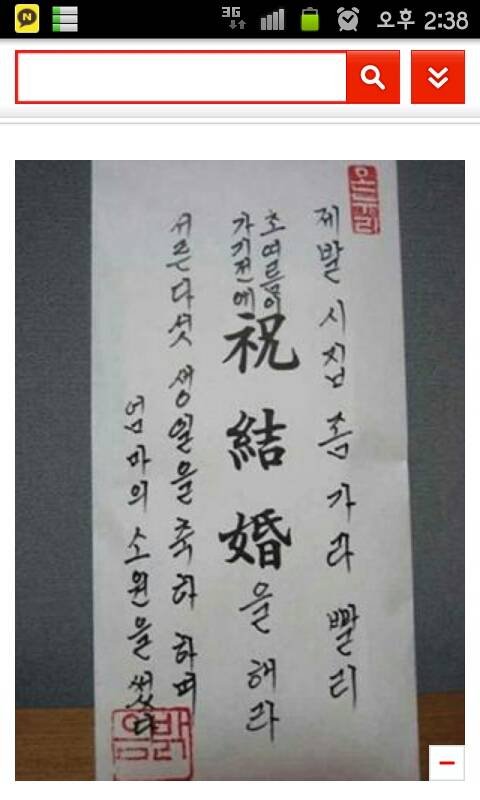 N 3G 오후 2:38
온누리
제발 시집 좀 가라 빨리
초여름이
가기전에
祝結婚을 해라
서른다섯 생일을 축하하며
엄마의 소원을 썼다
밝음